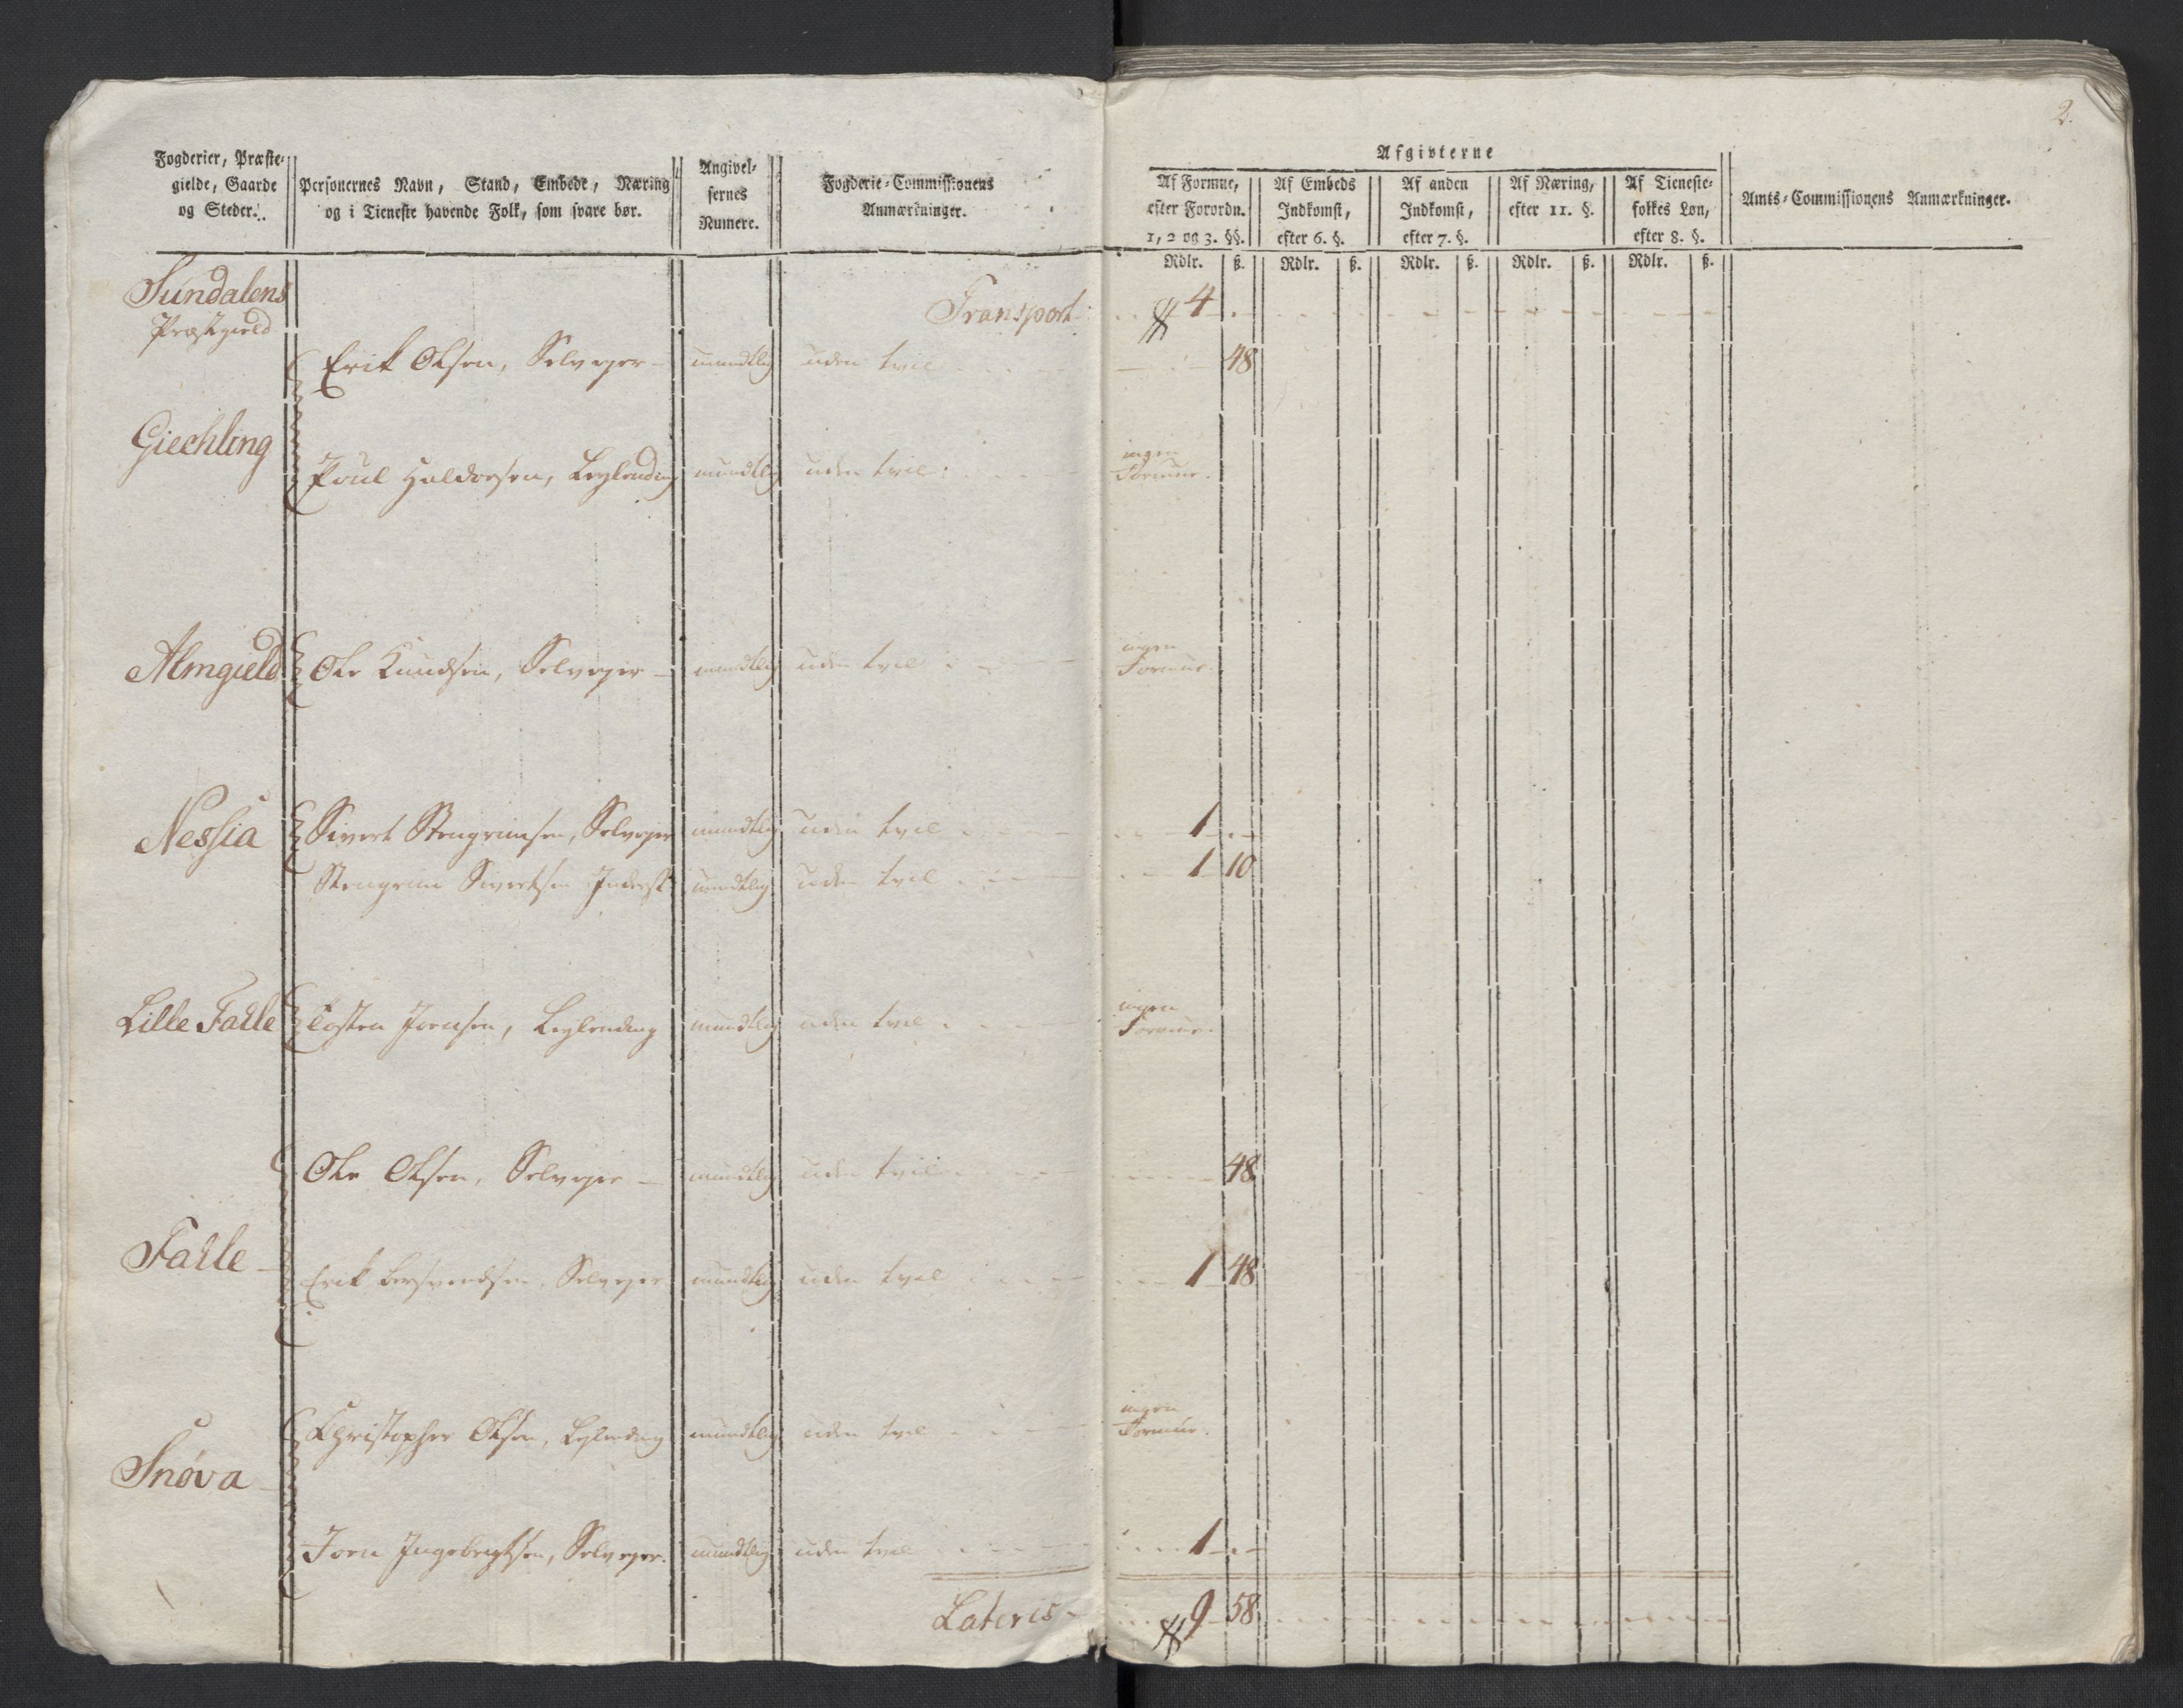 2.
Fogderier, Præste-
gielde, Gaarde
og Steder.
Personernes Navn, Stand, Embede, Næring
og i Tieneste havende Folk, som svare bør.
Angivel-
sernes
Numere.
Fogderie-Commissionens
Anmærkninger.
Afgivterne
Af Formue,
efter Forordn.
1, 2 og 3. §§.
Af Embeds
Indkomst,
efter 6. §.
Af anden
Indkomst,
efter 7. §.
Af Næring,
efter 11. §.
Af Tieneste-
folkes Løn,
efter 8. §.
Amts-Commissionens Anmærkninger.
Rdlr. ß. Rdlr. ß. Rdlr. ß. Rdlr. ß. Rdlr. ß.
Sundalens Transport 4
Præstgield
Erik Olsen, Selveyer mundtlig uden tvil 48
Giechling
Poul Haldorsen, Leylending mundtlig uden tvil ingen Formue.
Almgield Ole Knudsen, Selveyer mundtlig uden tvil ingen Formue.
Nessia Sivert Stengrimsen, Selveyer mundtlig uden tvil 1
Stengrim Sivertsen Inderst mundtlig uden tvil 1 10
Lille Falle Tosten Joensen, Leylending mundtlig uden tvil ingen Formue.
Ole Olsen, Selveyer mundtlig uden tvil 48
Falle
Erik Bersvendsen, Selveyer mundtlig uden tvil 1 48
Christopher Olsen, Leylending mundtlig uden tvil ingen Formue.
Snøva
Joen Ingebrigtsen, Selveyer. mundtlig uden tvil 1
Lateris 9 58